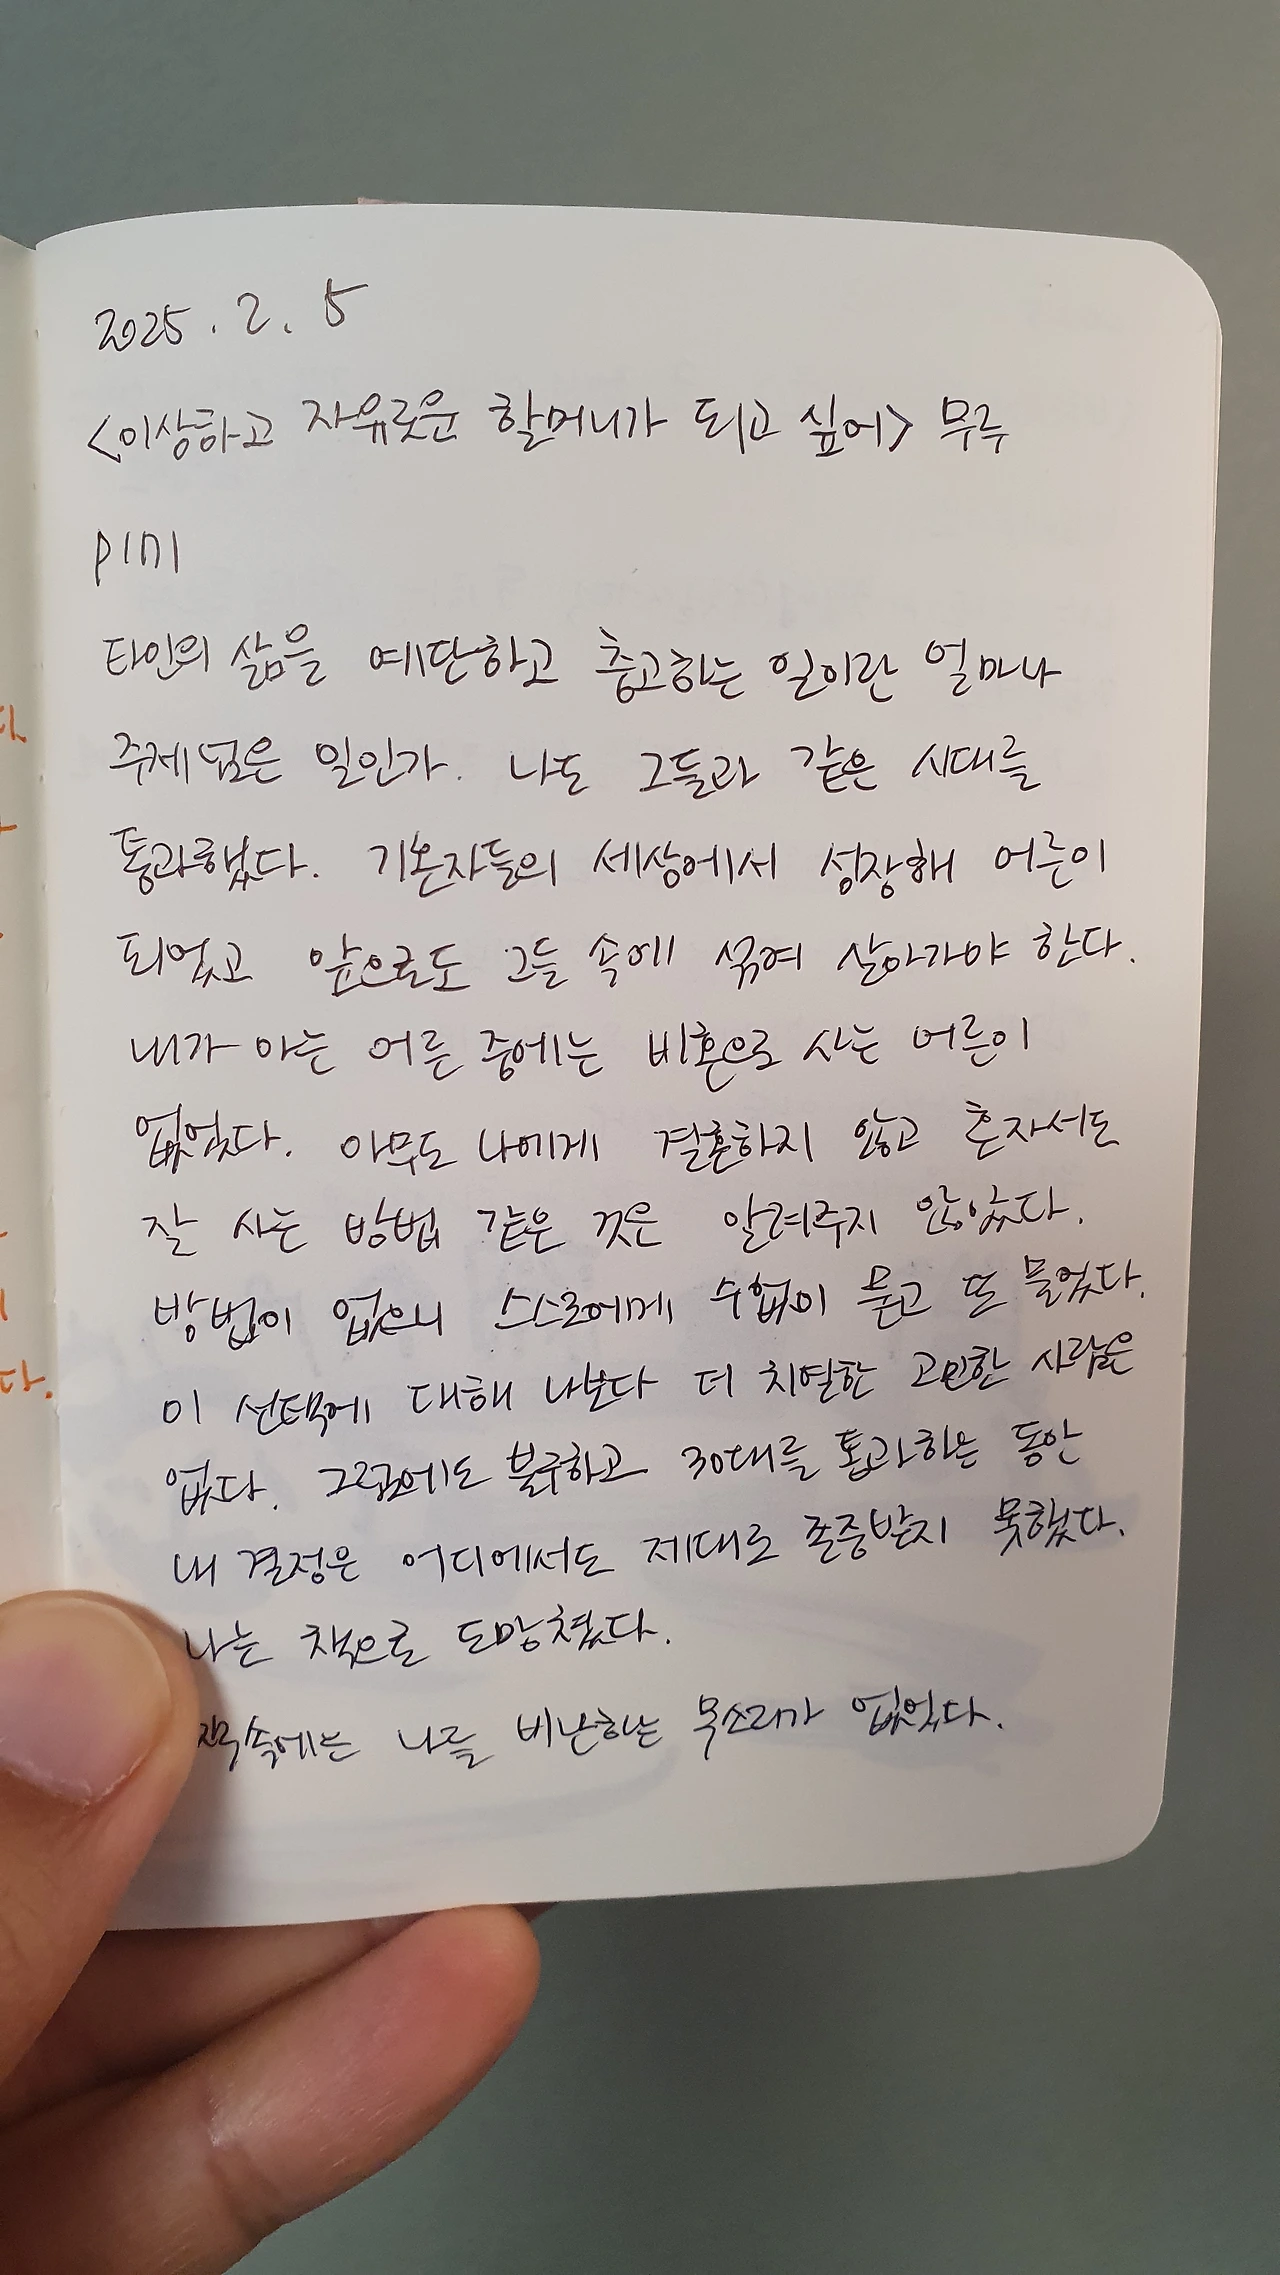 2025. 2. 5
<이상하고 자유로운 할머니가 되고 싶어> 무루
P171
타인의 삶을 예단하고 충고하는 일이란 얼마나
주제넘은 일인가. 나도 그들과 같은 시대를
통과했다. 기혼자들의 세상에서 성장해 어른이
되었고 앞으로도 그들 속에 섞여 살아가야 한다.
내가 아는 어른 중에는 비혼으로 사는 어른이
없었다. 아무도 나에게 결혼하지 않고 혼자서도
잘 사는 방법 같은 것은 알려주지 않았다.
방법이 없으니 스스로에게 수없이 묻고 또 물었다.
이 선택에 대해 나보다 더 치열한 고민한 사람은
없다. 그럼에도 불구하고 30대를 통과하는 동안
내 결정은 어디에서도 제대로 존중받지 못했다.
나는 책으로 도망쳤다.
책속에는 나를 비난하는 목소리가 없었다.
다.